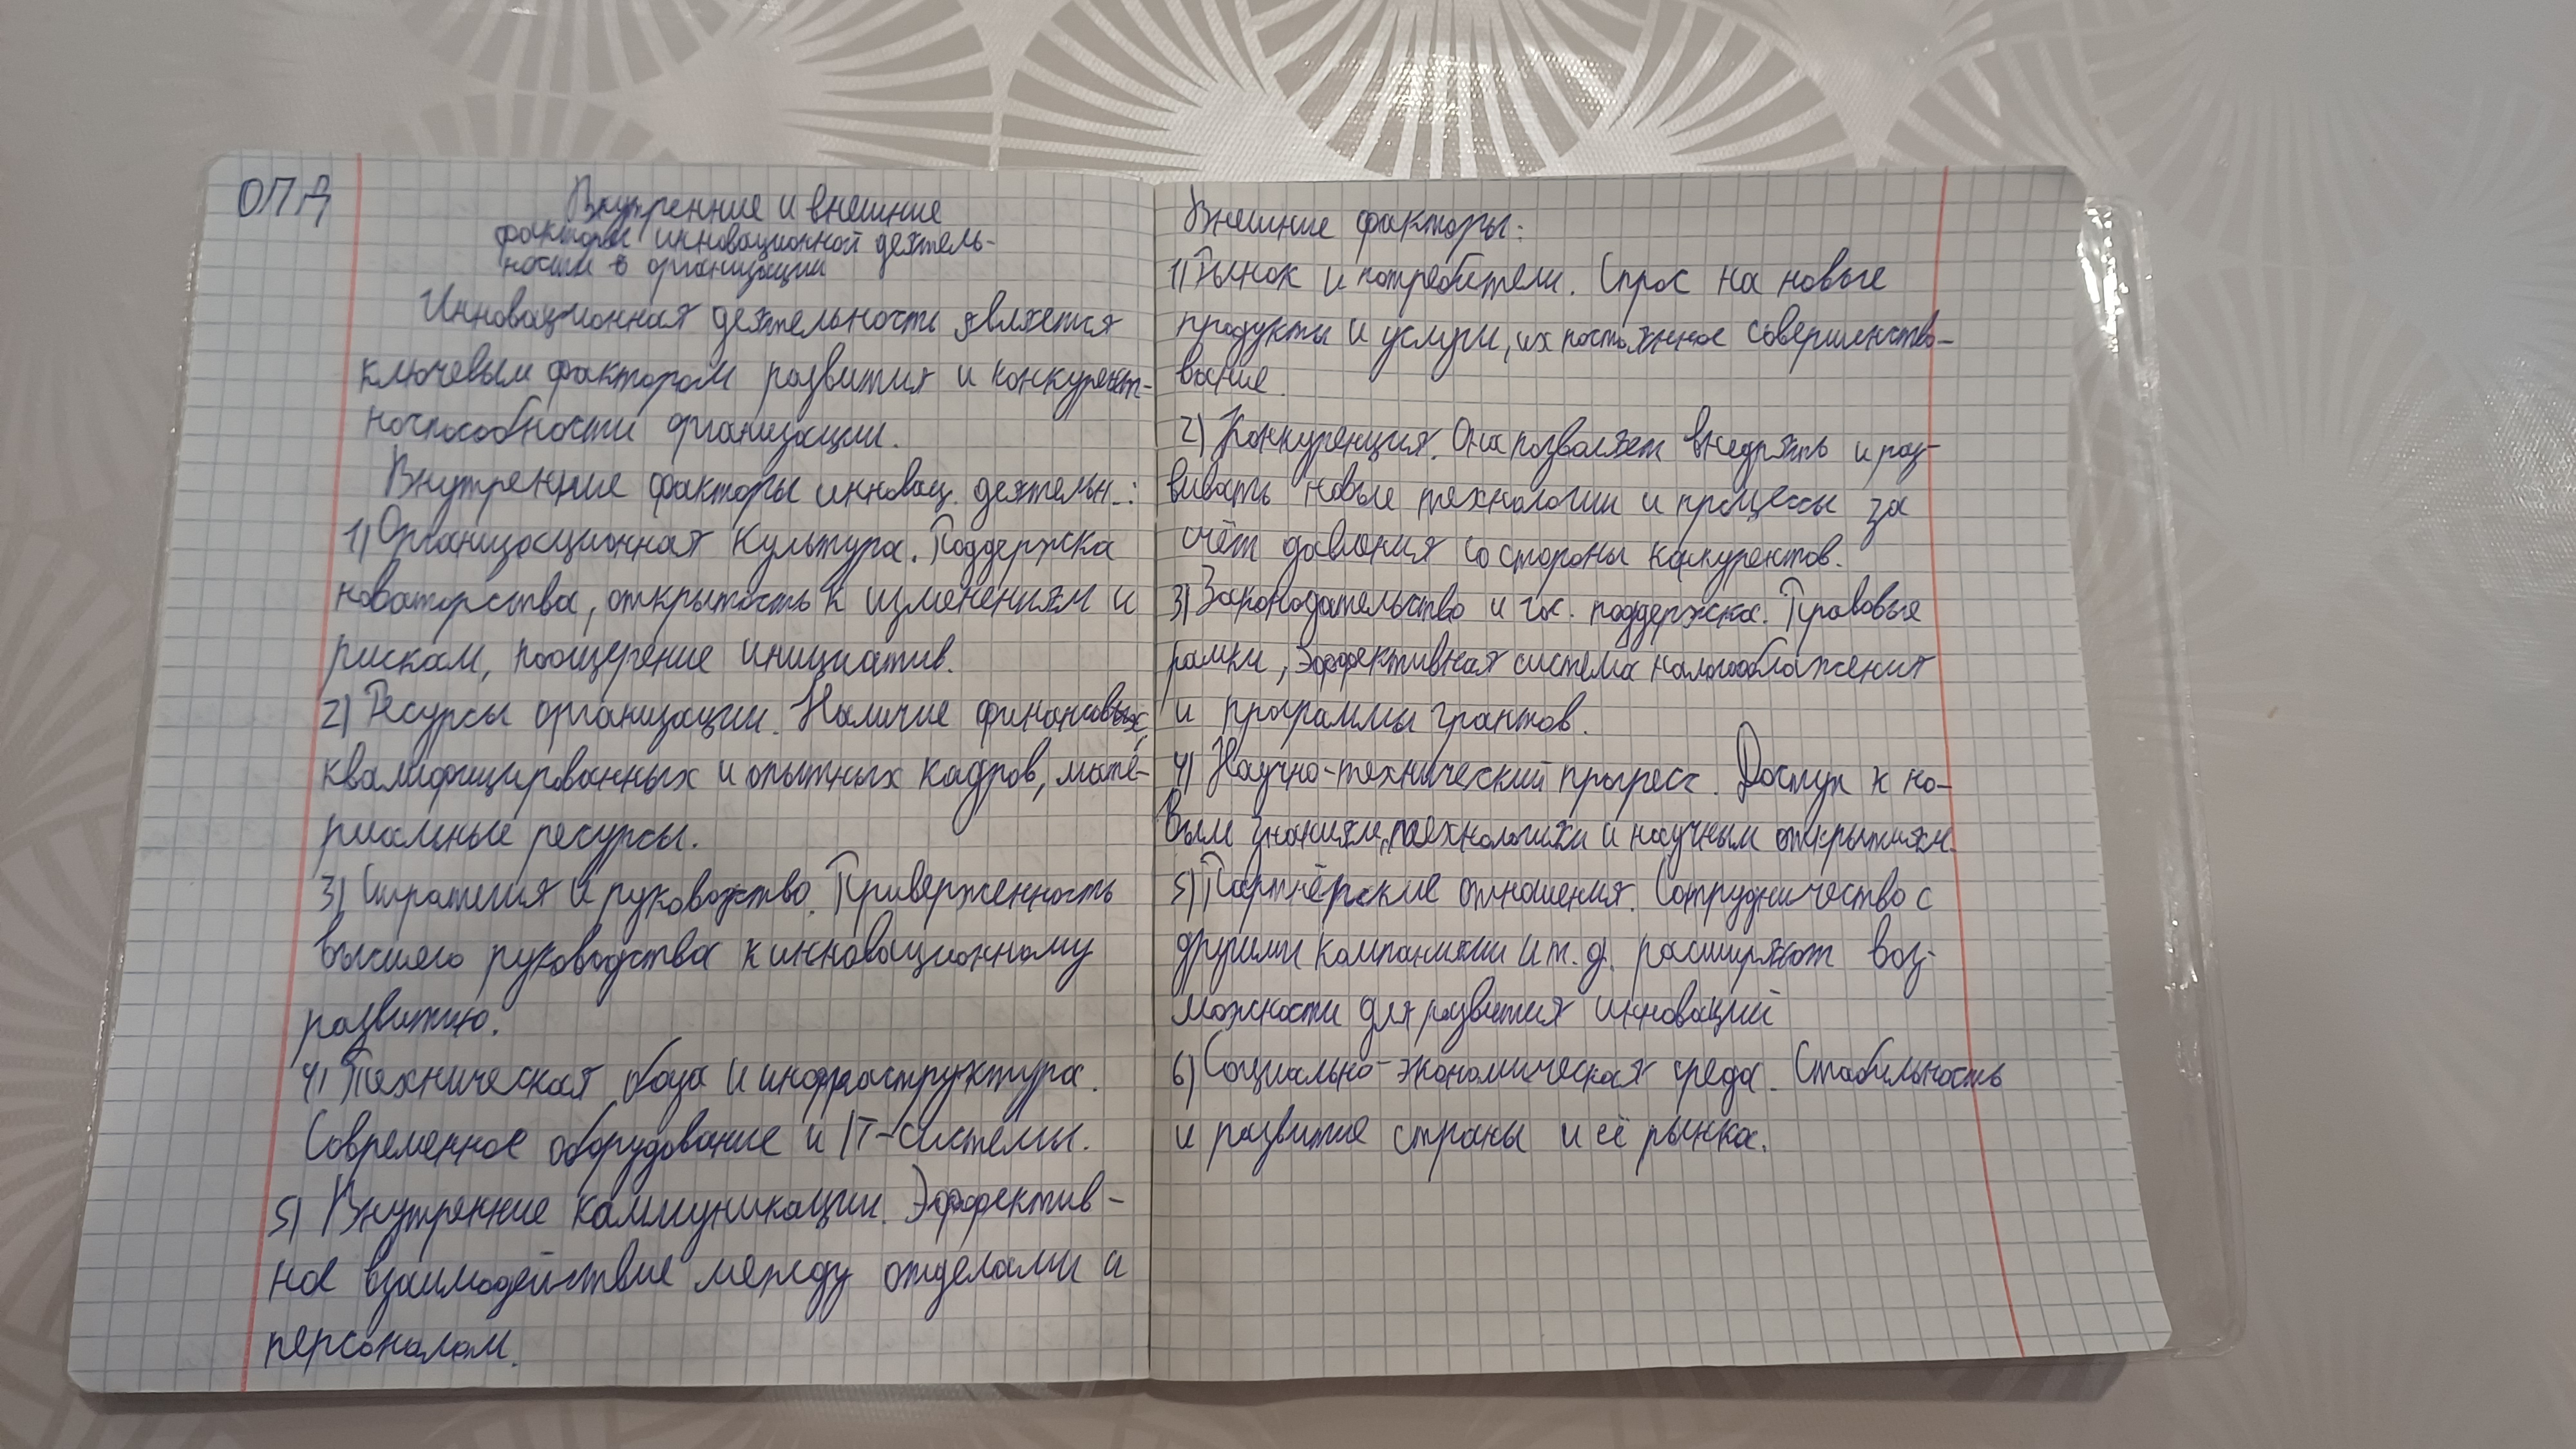 ОПД
Внутренние и внешние
факторы инновационной деятель-
ности в организации
Инновационная деятельность является
ключевым фактором развития и конкурент-
носпособности организации.
Внутренние факторы инновац. деятельн.:
1) Организационная культура. Поддержка
новаторства, открытость к изменениям и
рискам, поощрение инициатив.
2) Ресурсы организации. Наличие финансовых,
квалифицированных и опытных кадров, мате-
риальные ресурсы.
3) Стратегия и руководство. Приверженность
высшего руководства к инновационному
развитию.
4) Техническая база и инфраструктура.
Современное оборудование и IT-системы.
5) Внутренние коммуникации. Эффектив-
ное взаимодействие между отделами и
персоналом.
Внешние факторы:
1) Рынок и потребители. Спрос на новые
продукты и услуги, их постоянное совершенство-
вание.
2) Конкуренция. Она позволяет внедрять и раз-
вивать новые технологии и процессы за
счёт давления со стороны конкурентов.
3) Законодательство и гос. поддержка. Правовые
рамки, эффективная система налогообложения
и программы грантов.
4) Научно-технический прогресс. Доступ к но-
вым знаниям, технологиям и научным открытиям.
5) Партнёрские отношения. Сотрудничество с
другими компаниями и т.д. расширяют воз-
можности для развития инноваций
6) Социально-экономическая среда. Стабильность
и развитие страны и её рынка.